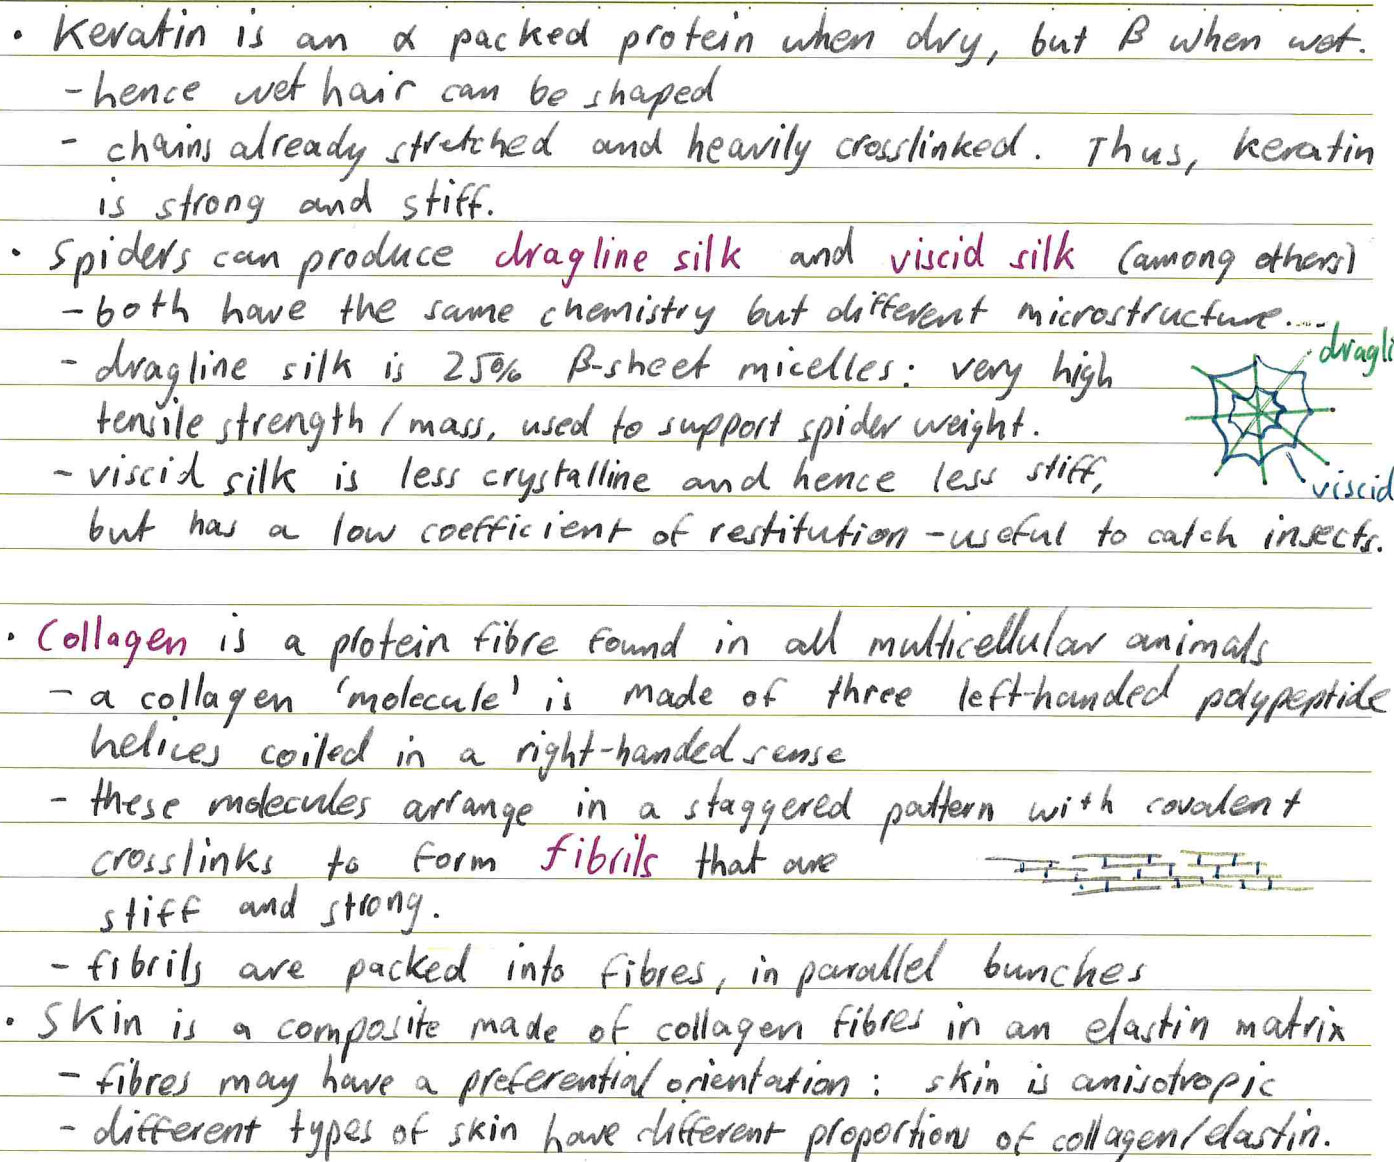 • Keratin is an α packed protein when dry, but β when wet.
- hence wet hair can be shaped
- chains already stretched and heavily crosslinked. Thus, keratin
is strong and stiff.
• Spiders can produce dragline silk and viscid silk (among others)
- both have the same chemistry but different microstructure....
- dragline silk is 25% β-sheet micelles: very high
dragli
tensile strength/mass, used to support spider weight.
- viscid silk is less crystalline and hence less stiff,
viscid
but has a low coefficient of restitution - useful to catch insects.
• Collagen is a protein fibre found in all multicellular animals
- a collagen 'molecule' is made of three left-handed polypeptide
helices coiled in a right-handed sense
- these molecules arrange in a staggered pattern with covalent
crosslinks to form fibrils that are
stiff and strong.
- fibrils are packed into fibres, in parallel bunches
• Skin is a composite made of collagen fibres in an elastin matrix
- fibres may have a preferential orientation: skin is anisotropic
- different types of skin have different proportions of collagen/elastin.